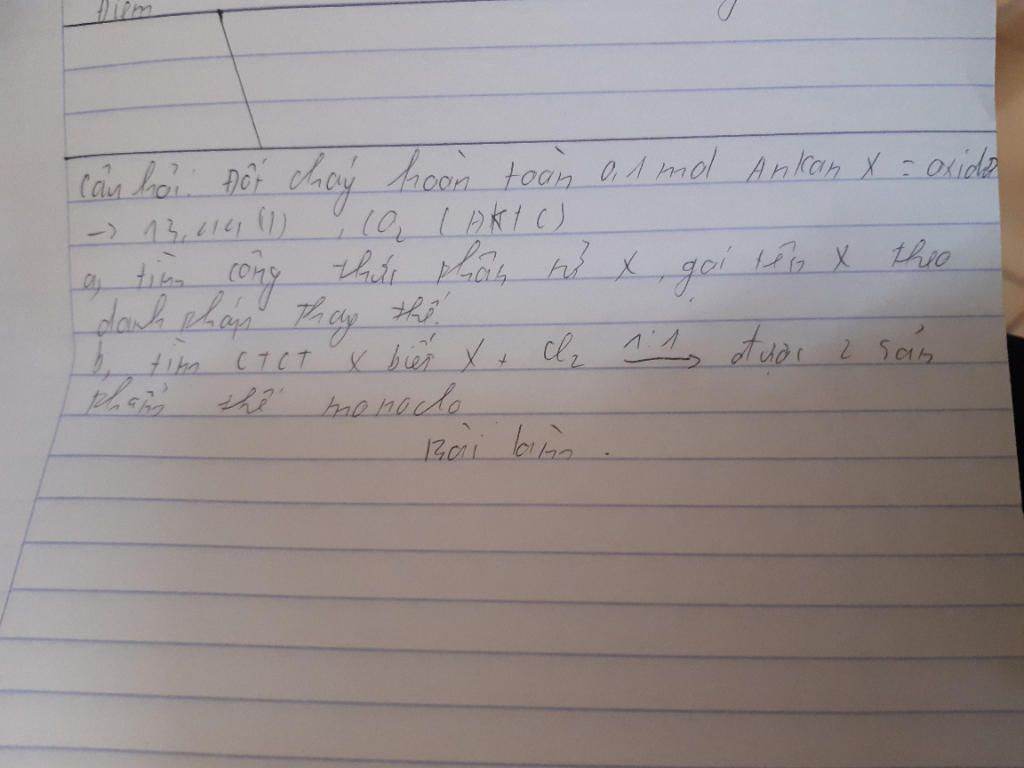 Điểm
Câu hỏi: Đốt cháy hoàn toàn 0,1 mol Ankan X = oxi dư
→ 13,44 (l) , CO₂ (ĐKTC)
a, tìm công thức phân tử X, gọi tên X theo
danh pháp thay thế.
b, tìm CTCT X biết X + Cl₂ 1:1 → được 2 sản
phẩm thế monoclo
Bài làm .